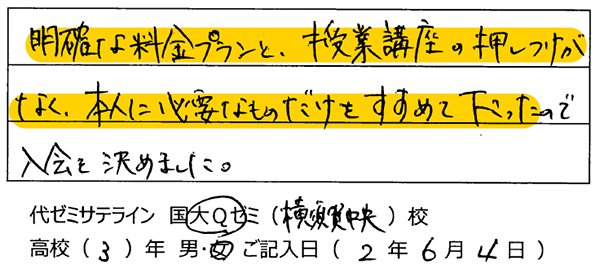 明確な料金プランと、授業講座の押しつけが
なく、本人に必要なものだけをすすめて下さったので
入会を決めました。
代ゼミサテライン 国大Qゼミ（横須賀中央）校
高校（3）年 男・女 ご記入日（2年6月4日）